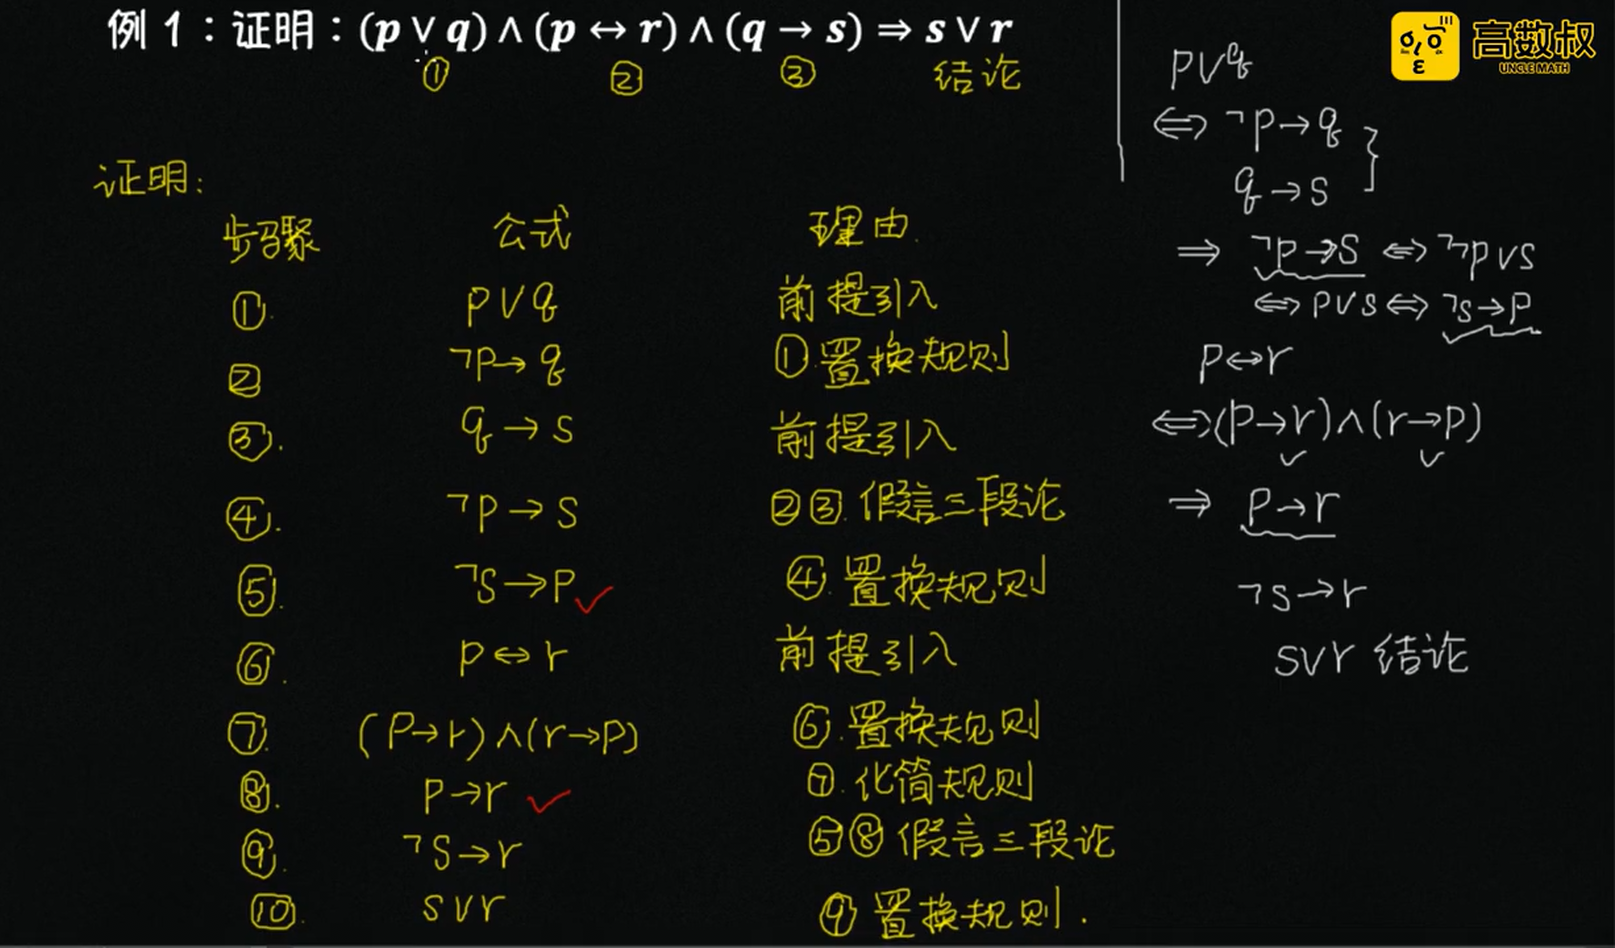 例 1：证明：(p ∨ q) ∧ (p ↔ r) ∧ (q → s) ⇒ s ∨ r
① ② ③ 结论
证明：
步骤 公式 理由.
①. p∨q 前提引入
② ¬p→q ①.置换规则
③. q→s 前提引入
④. ¬p→s ②③.假言三段论
⑤. ¬s→p ④.置换规则
⑥. p↔r 前提引入
⑦. (p→r)∧(r→p) ⑥.置换规则
⑧. p→r ⑦.化简规则
⑨. ¬s→r ⑤⑧假言三段论
⑩. s∨r ⑨置换规则.
p∨q
⇔ ¬p→q
q→s
⇒ ¬p→s ⇔ ¬¬p∨s
⇔ p∨s ⇔ ¬s→p
p↔r
⇔(p→r)∧(r→p)
⇒ p→r
¬s→r
s∨r 结论
高数叔
UNCLE MATH